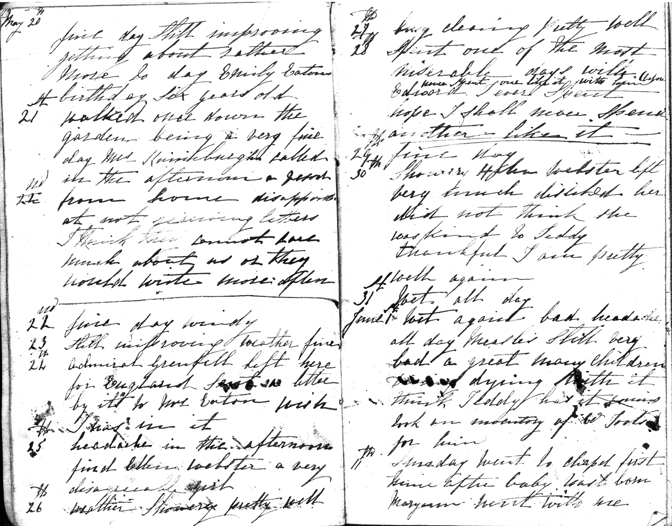 May 20th fine day still improoving
getting about rather
more to day Emily Eaton
birthday six years old
21st walked once down the
garden being a very fine
day Mrs called
in the afternoon
22nd from home disappoin
at not receiving letters
I think they cannot care
much about us or they
would wrote more often
22nd fine day windy
23 still improoving weather fine
24th admiral Grenfell left here
for England a letter
by it to Mrs Eaton wish
I was in it
25th headache in the afternoon
find Ellen Webster a very
disagreeable girl
26th weather showery pretty well
27th busy cleaning pretty well
28th Spent one of the most
miserable days with
never spent one like it with
Edward I ever spent
hope I shall never spend
another like it
29th fine day
30th showery Ellen Webster left
very much disliked her
did not think she
was kind to Teddy
thankful I am pretty
well again
31st wet all day
June 1st wet again bad headache
all day Measles still very
bad a great many children
dying with it
think Teddy has it
took an inventory of Tools
for him
11th Sunday went to chapel first
time after baby was born
Maryann went with me